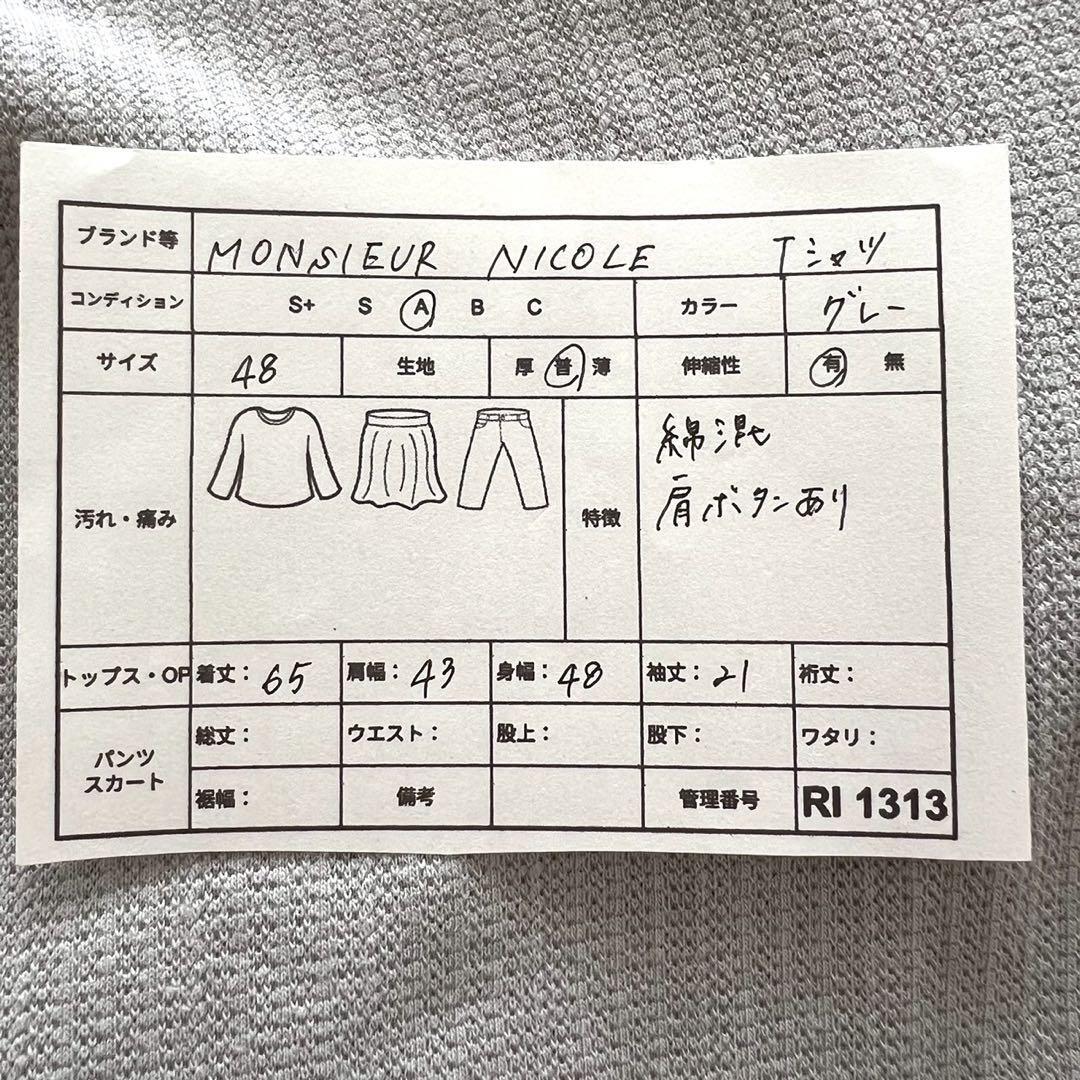 ブランド等 MONSIEUR NICOLE Tシャツ
コンディション S+ S A B C カラー グレー
サイズ 48 生地 厚 普 薄 伸縮性 有 無
汚れ・痛み 特徴 綿混
肩ボタンあり
トップス・OP 着丈: 65 肩幅: 43 身幅: 48 袖丈: 21 裄丈:
パンツ スカート 総丈: ウエスト: 股上: 股下: ワタリ:
裾幅: 備考 管理番号 RI 1313